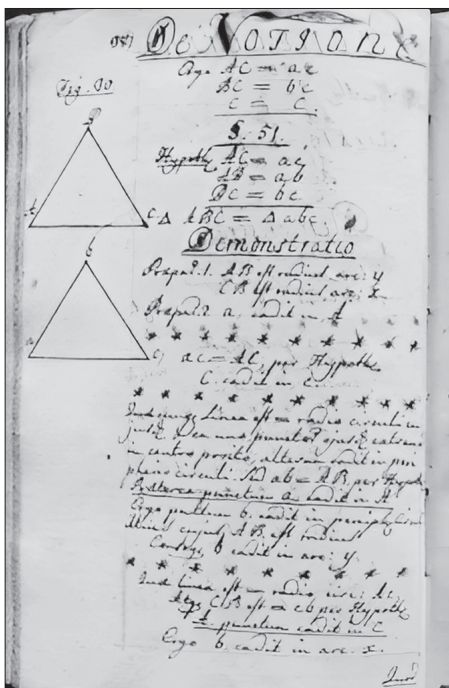 De NOTIONE
Fig. 80
Ergo AC = ac
BC = bc
C = C.
§. 51.
B
Hypoth: AC = ac
AB = ab
BC = bc
A
C
Δ ABC = Δ abc.
Demonstratio
b
Præpar. 1. AB est radius arc: y
CB est radius arc: x
Præpar. 2 a, cadit in A
* * * * * * * * *
a
c
ac = AC, per Hypoth:
C. cadit in c.
* * * * * * * * *
linea est = radio circuli
puncto
in centro posito, alterum cadit in peri
pheria circuli Sed ab = AB, per Hypoth:
Præterea punctum a, cadit in A
Ergo punctum b. cadit in periph:
cujus AB. est radius
b cadit in arc: y.
* * * * * * * *
linea est = radio circ:
CB est = cb per Hypoth:
punctum cadit in C
Ergo b. cadit in arc. x.
Quod